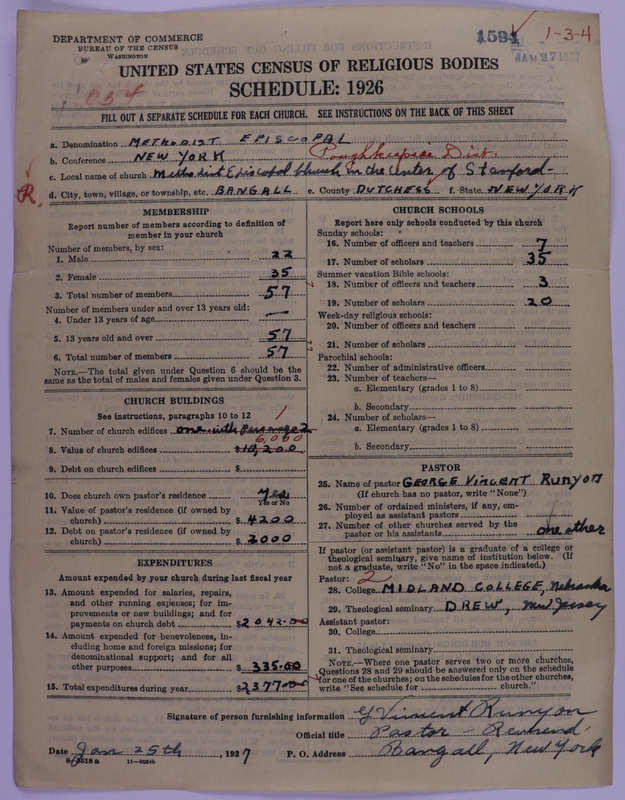 DEPARTMENT OF COMMERCE
BUREAU OF THE CENSUS
WASHINGTON
1594 1-3-4
JAN 27 1927
UNITED STATES CENSUS OF RELIGIOUS BODIES
SCHEDULE: 1926
FILL OUT A SEPARATE SCHEDULE FOR EACH CHURCH. SEE INSTRUCTIONS ON THE BACK OF THIS SHEET
a. Denomination METHODIST EPISCOPAL
b. Conference NEW YORK Poughkeepsie Dist.
c. Local name of church Methodist Episcopal Church in the Center of Stanford
R.
d. City, town, village, or township, etc. BANGALL e. County DUTCHESS f. State NEW YORK
MEMBERSHIP
Report number of members according to definition of
member in your church
Number of members, by sex:
1. Male 22
2. Female 35
3. Total number of members 57
Number of members under and over 13 years old:
4. Under 13 years of age —
5. 13 years old and over 57
6. Total number of members 57
NOTE.—The total given under Question 6 should be the
same as the total of males and females given under Question 3.
CHURCH BUILDINGS
See instructions, paragraphs 10 to 12
1
7. Number of church edifices one with parsonage 2
6,000
8. Value of church edifices $10,200
9. Debt on church edifices $
10. Does church own pastor's residence Yes
Yes or No
11. Value of pastor's residence (if owned by
church) $4200
12. Debt on pastor's residence (if owned by
church) $2000
EXPENDITURES
Amount expended by your church during last fiscal year
13. Amount expended for salaries, repairs,
and other running expenses; for im-
provements or new buildings; and for
payments on church debt $2042.00
14. Amount expended for benevolences, in-
cluding home and foreign missions; for
denominational support; and for all
other purposes $335.00
15. Total expenditures during year $2377.00
CHURCH SCHOOLS
Report here only schools conducted by this church
Sunday schools:
16. Number of officers and teachers 7
17. Number of scholars 35
Summer vacation Bible schools:
18. Number of officers and teachers 3
19. Number of scholars 20
Week-day religious schools:
20. Number of officers and teachers
21. Number of scholars
Parochial schools:
22. Number of administrative officers
23. Number of teachers—
a. Elementary (grades 1 to 8)
b. Secondary
24. Number of scholars—
a. Elementary (grades 1 to 8)
b. Secondary
PASTOR
25. Name of pastor GEORGE VINCENT RUNYON
(If church has no pastor, write "None")
26. Number of ordained ministers, if any, em-
ployed as assistant pastors
27. Number of other churches served by the
pastor or his assistants one other
If pastor (or assistant pastor) is a graduate of a college or
theological seminary, give name of institution below. (If
not a graduate, write "No" in the space indicated.)
Pastor: 2
28. College MIDLAND COLLEGE, Nebraska
29. Theological seminary DREW, New Jersey
Assistant pastor:
30. College
31. Theological seminary
NOTE.—Where one pastor serves two or more churches,
Questions 28 and 29 should be answered only on the schedule
for one of the churches; on the schedules for the other churches,
write "See schedule for church."
Signature of person furnishing information G Vincent Runyon
Official title Pastor - Reverend
Date Jan 25th, 1927 P. O. Address Bangall, New York